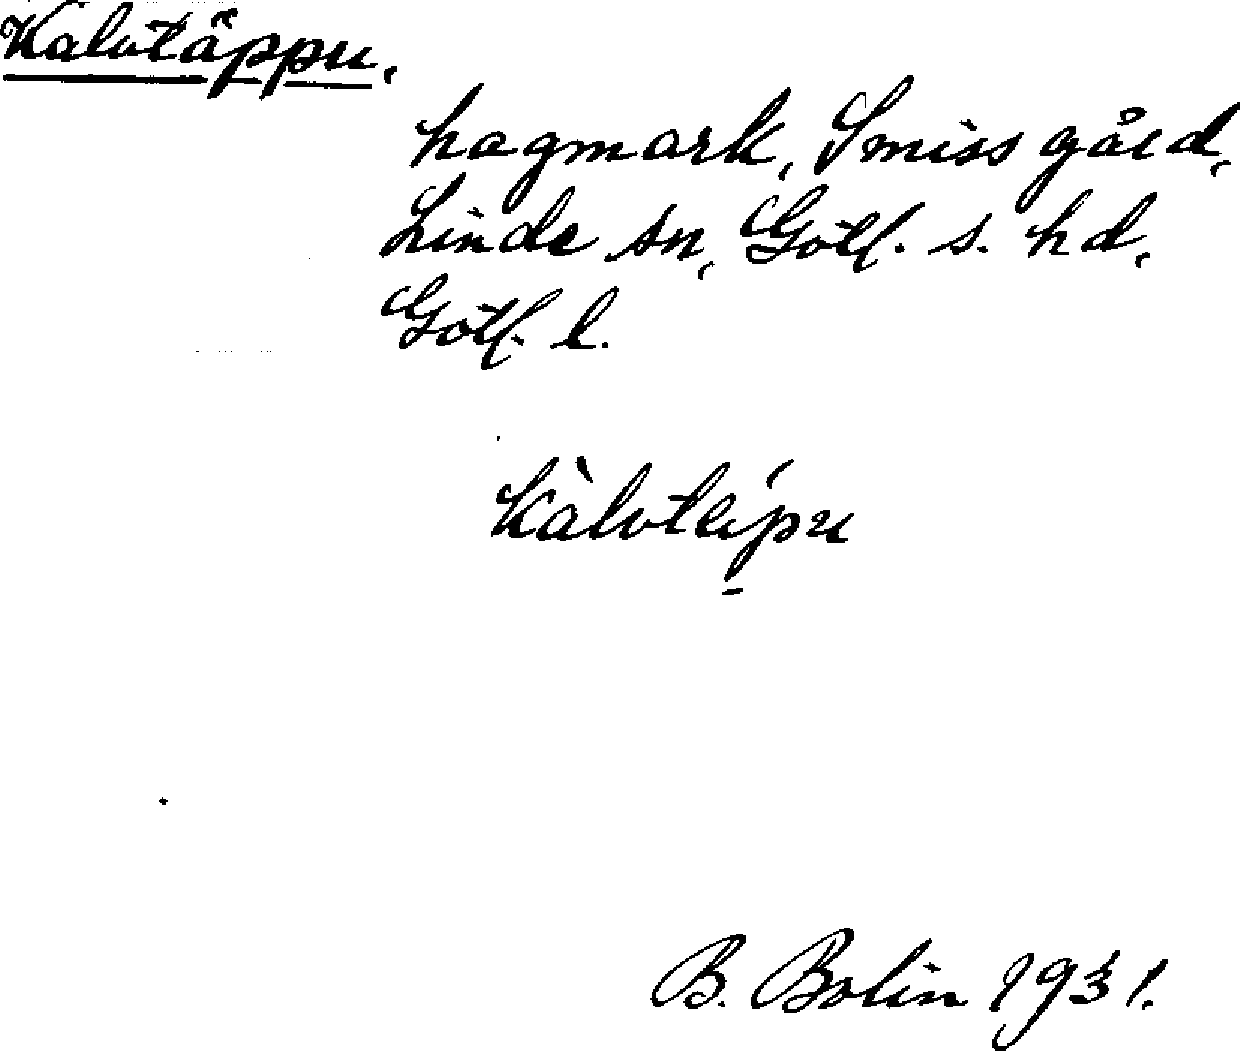 Kalvtäppu.
hagmark, Smiss gård,
Linde sn, Gotl. s. hd,
Gotl. l.
B. Bolin 1931.